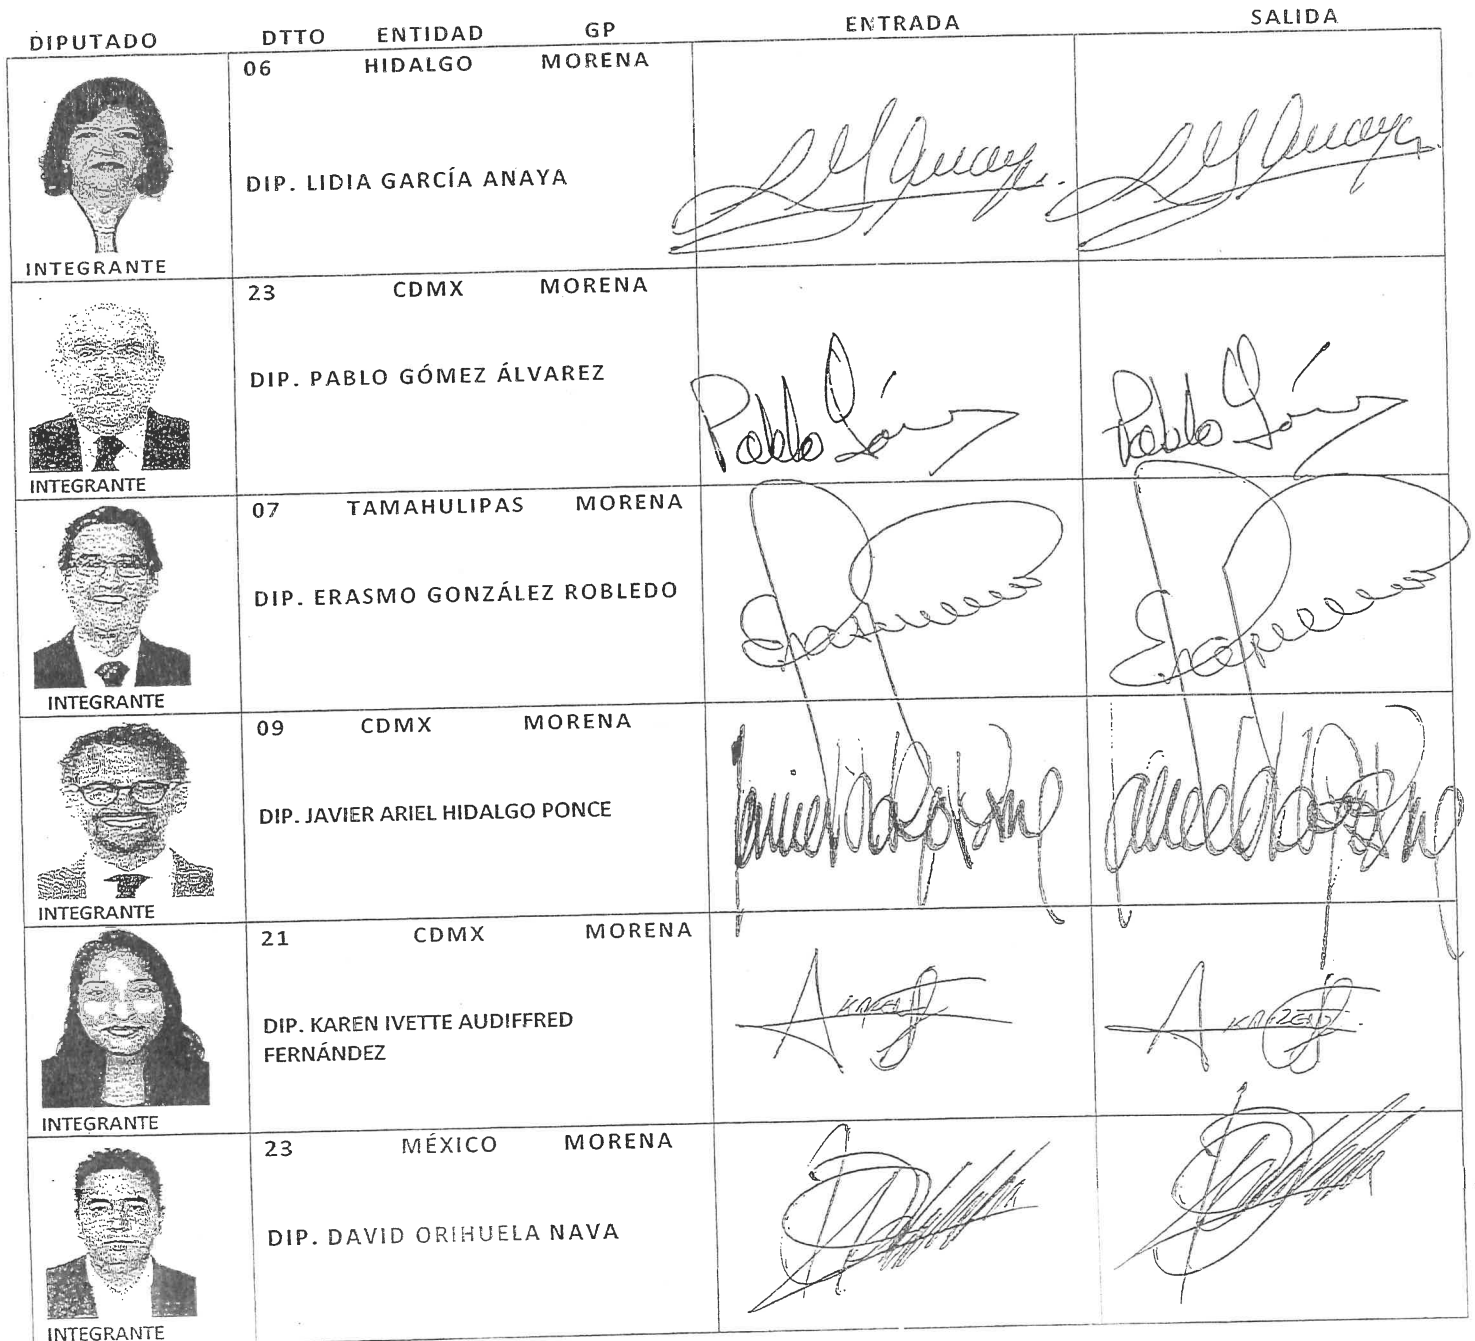 DIPUTADO DTTO ENTIDAD GP ENTRADA SALIDA
06 HIDALGO MORENA
DIP. LIDIA GARCÍA ANAYA
INTEGRANTE
23 CDMX MORENA
DIP. PABLO GÓMEZ ÁLVAREZ
Pablo Gómez Pablo Gómez
INTEGRANTE
07 TAMAHULIPAS MORENA
DIP. ERASMO GONZÁLEZ ROBLEDO
INTEGRANTE
09 CDMX MORENA
DIP. JAVIER ARIEL HIDALGO PONCE
INTEGRANTE
21 CDMX MORENA
DIP. KAREN IVETTE AUDIFFRED
FERNÁNDEZ
INTEGRANTE
23 MÉXICO MORENA
DIP. DAVID ORIHUELA NAVA
INTEGRANTE